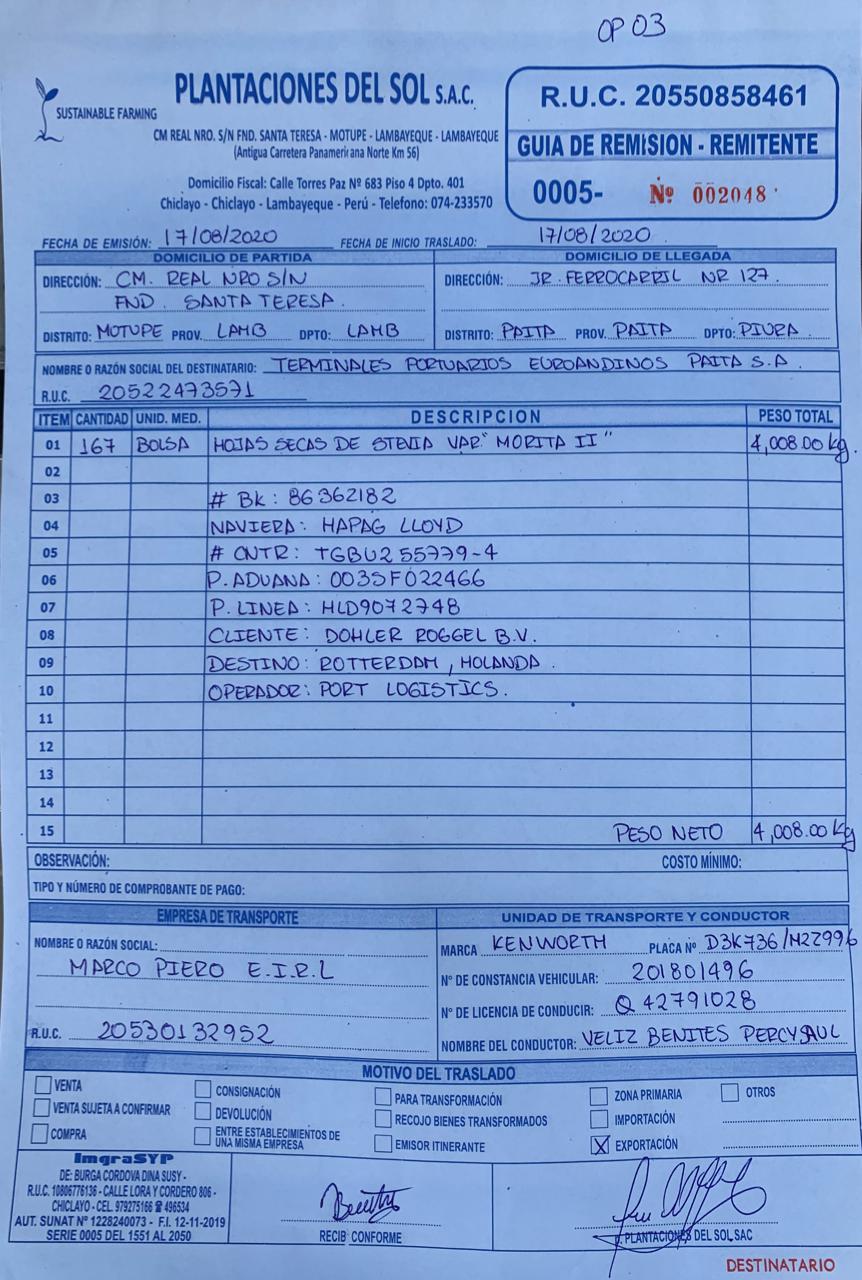 OP 03
SUSTAINABLE FARMING
PLANTACIONES DEL SOL S.A.C.
CM REAL NRO. S/N FND. SANTA TERESA - MOTUPE - LAMBAYEQUE - LAMBAYEQUE
(Antigua Carretera Panamericana Norte Km 56)
Domicilio Fiscal: Calle Torres Paz Nº 683 Piso 4 Dpto. 401
Chiclayo - Chiclayo - Lambayeque - Perú - Telefono: 074-233570
R.U.C. 20550858461
GUIA DE REMISION - REMITENTE
0005- Nº 002048
FECHA DE EMISIÓN: 17/08/2020 FECHA DE INICIO TRASLADO: 17/08/2020
DOMICILIO DE PARTIDA
DIRECCIÓN: CM. REAL NRO S/N
FND. SANTA TERESA.
DISTRITO: MOTUPE PROV. LAMB DPTO: LAMB
DOMICILIO DE LLEGADA
DIRECCIÓN: JR. FERROCARRIL NR 127.
DISTRITO: PAITA PROV. PAITA DPTO: PIURA.
NOMBRE O RAZÓN SOCIAL DEL DESTINATARIO: TERMINALES PORTUARIOS EUROANDINOS PAITA S.A.
R.U.C. 20522473571
ITEM CANTIDAD UNID. MED. DESCRIPCION PESO TOTAL
01 167 BOLSA HOJAS SECAS DE STEVIA VAR "MORITA II" 4,008.00 kg.
02
03 # BK: 86362182
04 NAVIERA: HAPAG LLOYD
05 # CNTR: TGBU255779-4
06 P. ADUANA: 0035F022466
07 P. LINEA: HLD9072748
08 CLIENTE: DOHLER ROGGEL B.V.
09 DESTINO: ROTTERDAM, HOLANDA.
10 OPERADOR: PORT LOGISTICS.
11
12
13
14
15 PESO NETO 4,008.00 Kg
OBSERVACIÓN: COSTO MÍNIMO:
TIPO Y NÚMERO DE COMPROBANTE DE PAGO:
EMPRESA DE TRANSPORTE
NOMBRE O RAZÓN SOCIAL:
MARCO PIERO E.I.R.L
R.U.C. 20530132952
UNIDAD DE TRANSPORTE Y CONDUCTOR
MARCA KENWORTH PLACA Nº D3K736/M2Z996
Nº DE CONSTANCIA VEHICULAR: 201801496
Nº DE LICENCIA DE CONDUCIR: Q 42791028
NOMBRE DEL CONDUCTOR: VELIZ BENITES PERCY SAUL
MOTIVO DEL TRASLADO
VENTA
VENTA SUJETA A CONFIRMAR
COMPRA
CONSIGNACIÓN
DEVOLUCIÓN
ENTRE ESTABLECIMIENTOS DE
UNA MISMA EMPRESA
PARA TRANSFORMACIÓN
RECOJO BIENES TRANSFORMADOS
EMISOR ITINERANTE
ZONA PRIMARIA
IMPORTACIÓN
X EXPORTACIÓN
OTROS
ImgraSYP
DE: BURGA CORDOVA DINA SUSY -
R.U.C. 10806776136 - CALLE LORA Y CORDERO 806 -
CHICLAYO - CEL. 979275166 ☎ 496534
AUT. SUNAT Nº 1228240073 - F.I. 12-11-2019
SERIE 0005 DEL 1551 AL 2050
RECIBÍ CONFORME
P. PLANTACIONES DEL SOL SAC
DESTINATARIO